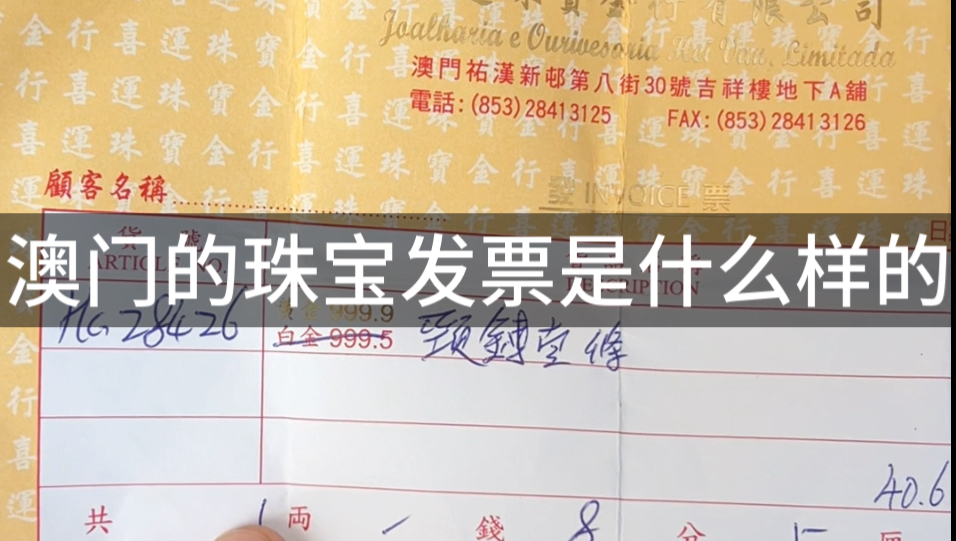 珠寶金行有限公司
Joalharia e Ourivesaria Hei Van, Limitada
澳門祐漢新邨第八街30號吉祥樓地下A舖
電話:(853)28413125 FAX:(853)28413126
顧客名稱
發 INVOICE 票
貨 號
ARTICLE NO.
DESCRIPTION
澳门的珠宝发票是什么样的
HG 28426
黃金 999.9
白金 999.5
頸鏈壹條
40.6
共 1 両 一 錢 8 分 厘